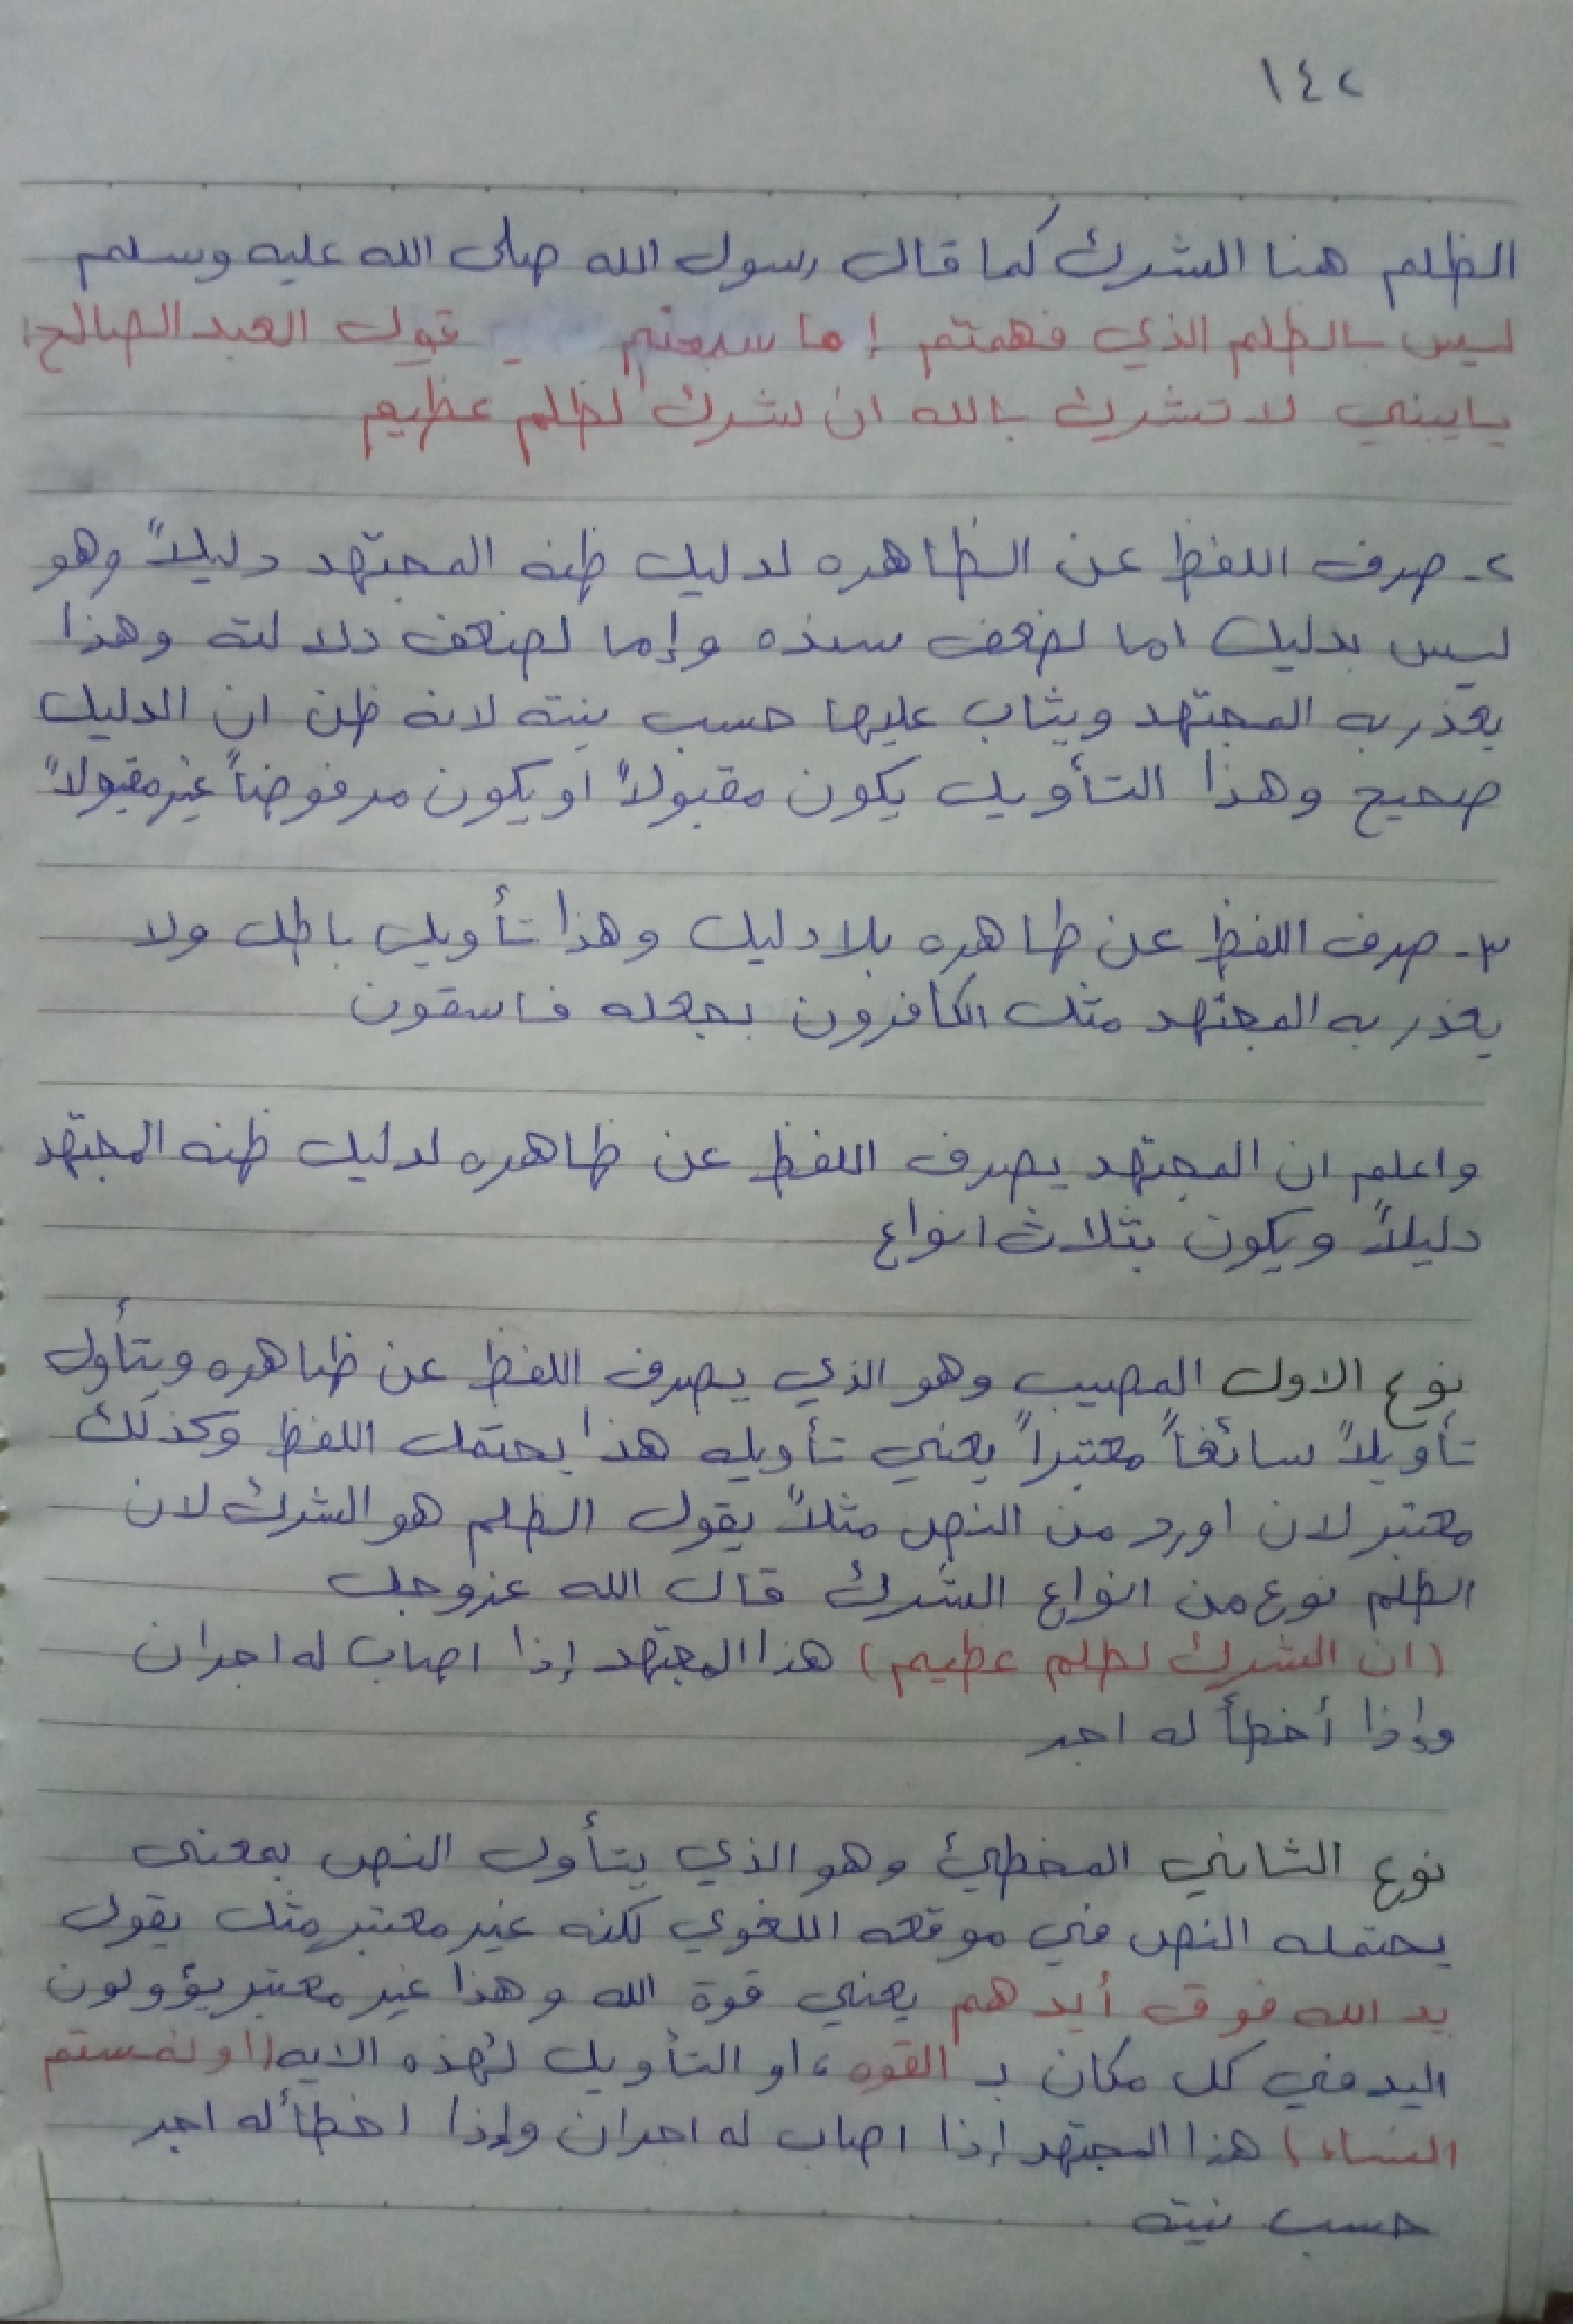 ١٤٢
الظلم هنا الشرك كما قال رسول الله صلى الله عليه وسلم
ليس بالظلم الذي فهمتم إما سمعتم قول العبد الصالح:
يايبني لا تشرك بالله ان لشرك لظلم عظيم
٢- صرف اللفظ عن الظاهره لدليل ظنه المجتهد دليلاً وهو
ليس بدليل اما لضعف سنده وإما لضعف دلالته وهذا
يعذر به المجتهد ويثاب عليها حسب نيته لانه ظن ان الدليل
صحيح وهذا التأويل يكون مقبولاً او يكون مرفوضاً غير مقبولاً
٣- صرف اللفظ عن ظاهره بلا دليل وهذا تأويل باطل ولا
يعذر به المجتهد مثل الكافرون بجعله فاسقون
واعلم ان المجتهد يصرف اللفظ عن ظاهره لدليل ظنه المجتهد
دليلاً ويكون بثلاث انواع
نوع الاول المصيب وهو الذي يصرف اللفظ عن ظاهره ويتأول
تأويلاً سائغاً معتبراً يعني تأويله هذا يحتمل اللفظ وكذلك
معتبر لان اورد من النص مثلاً يقول الظلم هو الشرك لان
الظلم نوع من انواع الشرك قال الله عزوجل
(ان الشرك لظلم عظيم) هذا المجتهد إذا اصاب له اجران
وإذا أخطأ له اجر
نوع الثاني المخطئ وهو الذي يتأول النص بمعنى
يحتمله النص في موقعه اللغوي لكنه غير معتبر مثل يقول
يد الله فوق أيدهم يعني قوة الله وهذا غير معتبر يؤولون
اليد في كل مكان بـ القوه، او التأويل لهذه الايه (او لمستم
النساء) هذا المجتهد إذا اصاب له اجران وإذا اخطأ له اجر
حسب نيته